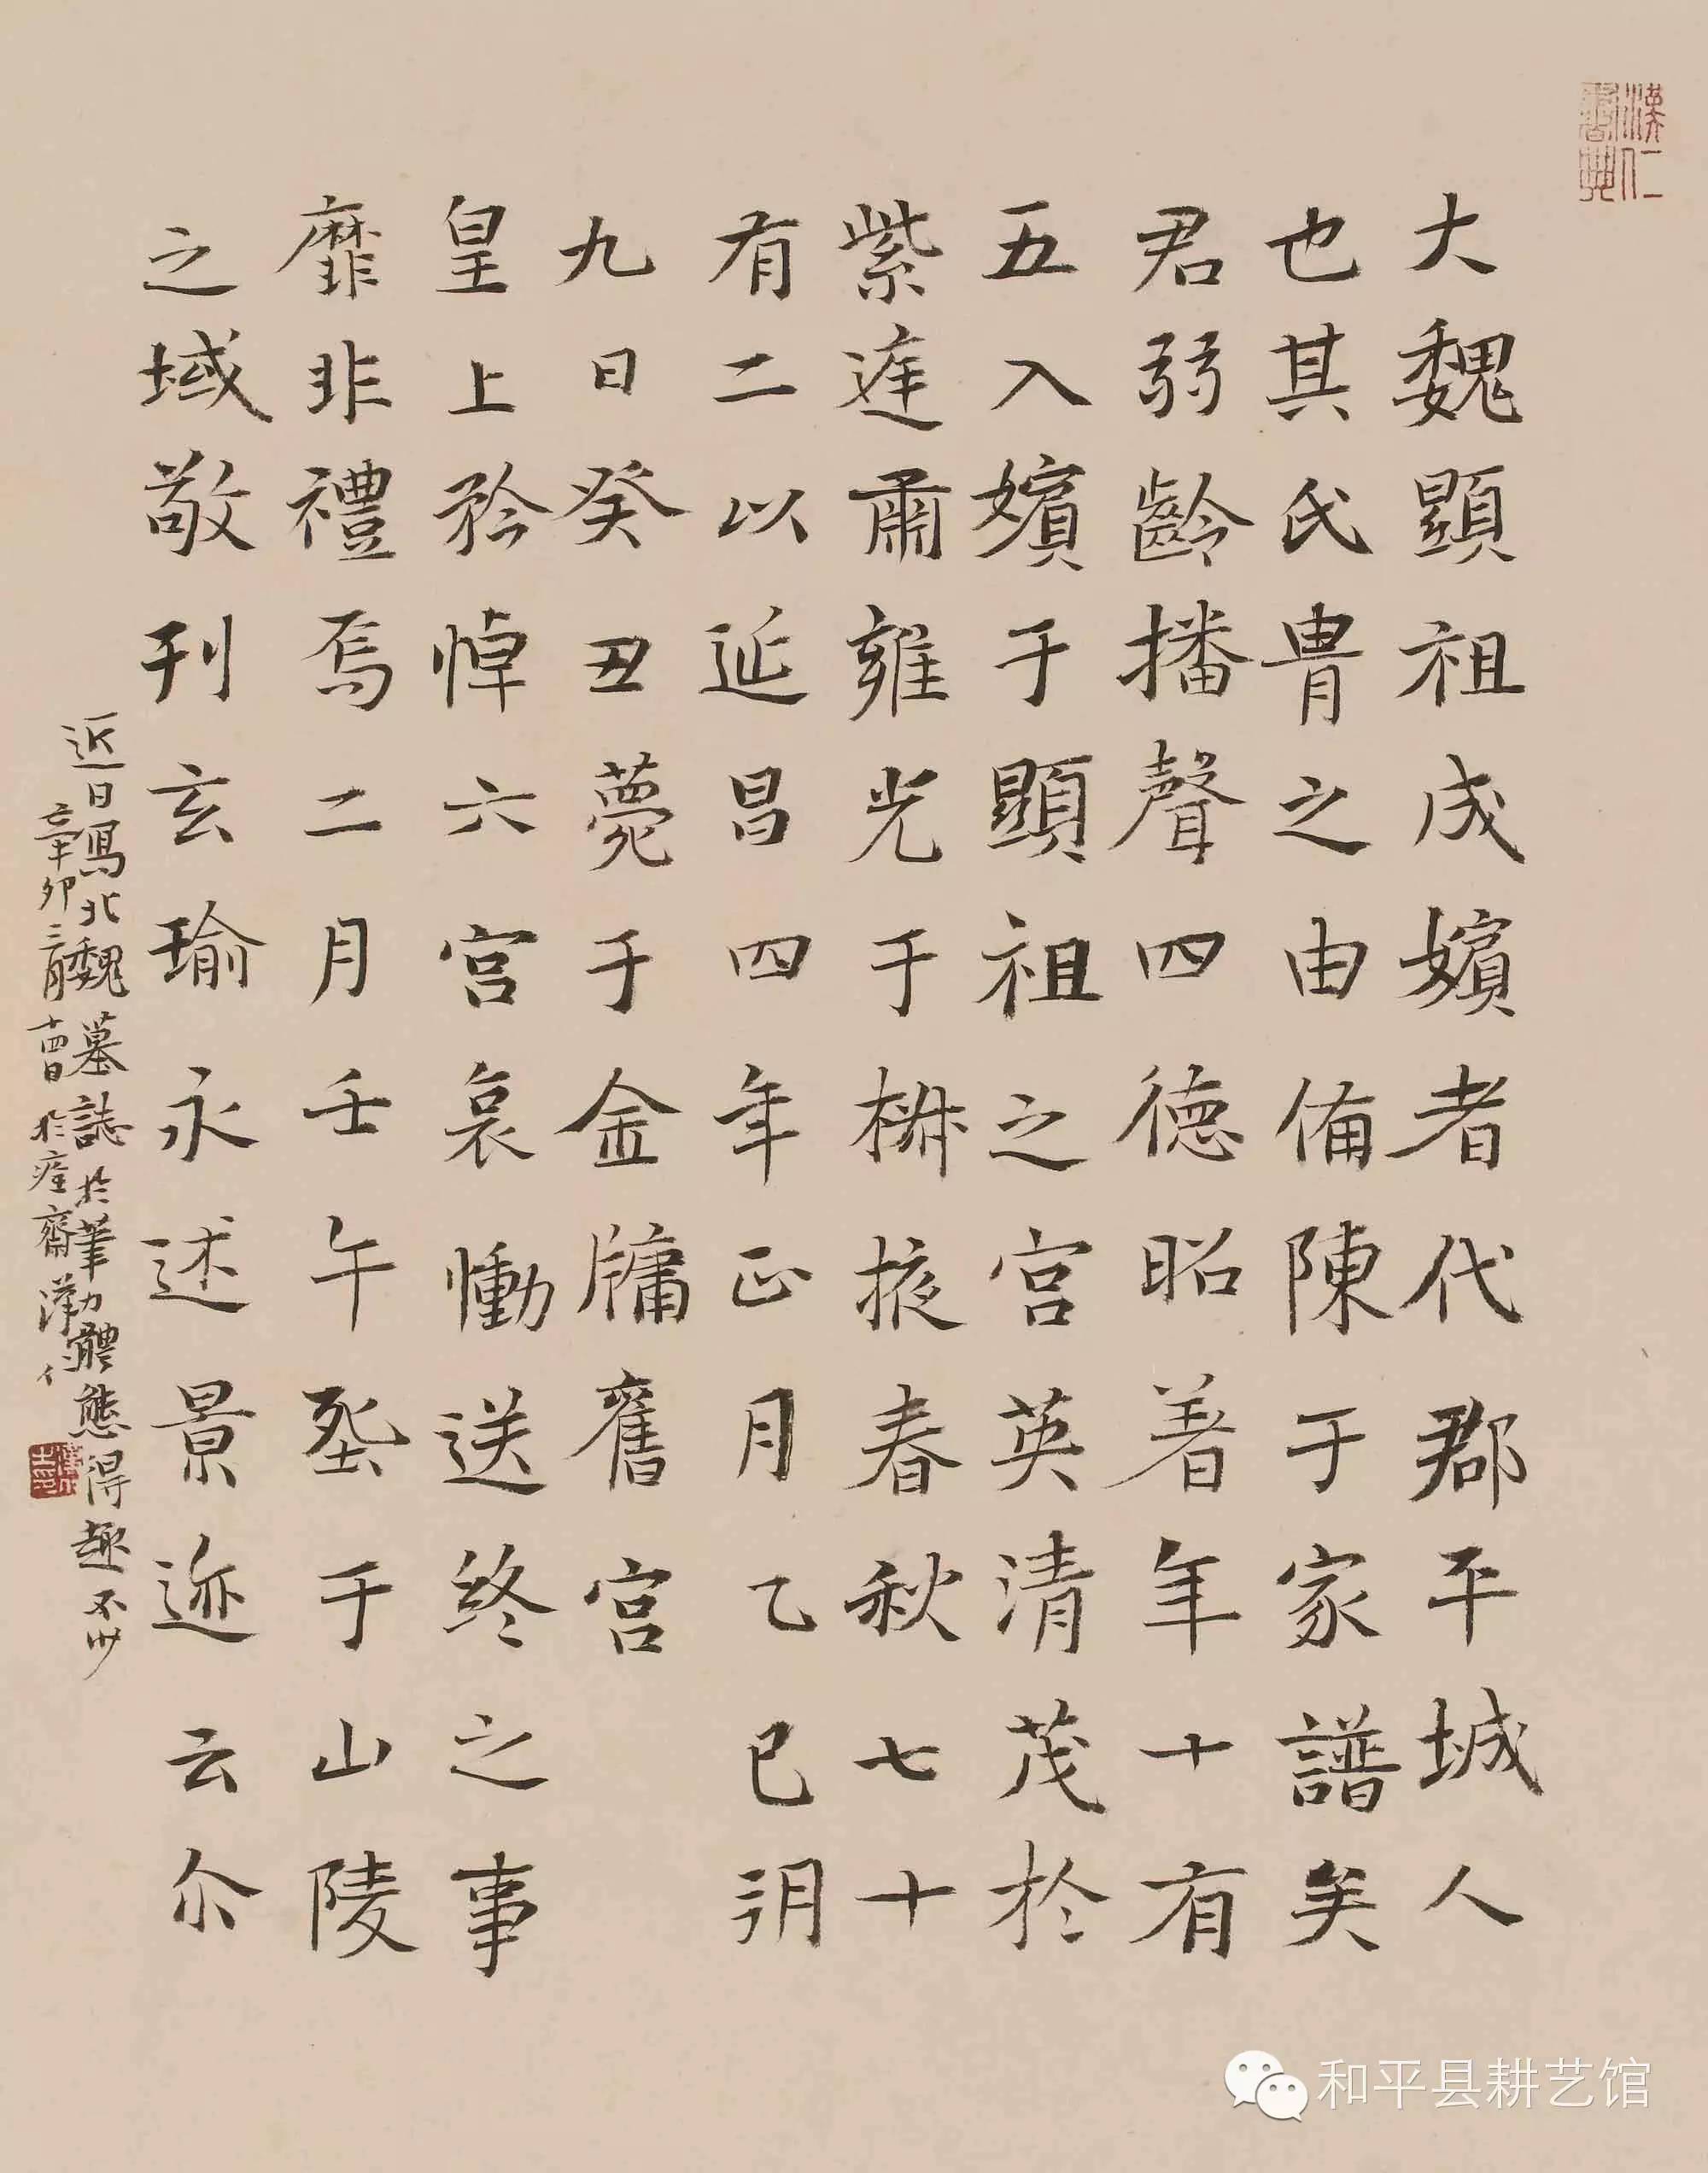 大魏顯祖成嬪者代郡平城人
也其氏胄之由備陳于家譜矣
君弱齡播聲四德昭著年十有
五入嬪于顯祖之宮英清茂於
紫庭肅雍光于椒掖春秋七十
有二以延昌四年正月乙巳朔
九日癸丑薨于金牗舊宮
皇上矜悼六宮哀慟送終之事
靡非禮焉二月壬午葬于山陵
之域敬刊玄瑜永述景迹云尒
近日寫北魏墓誌於筆勢體態得趣不少
辛卯二月十四日於痊齋漢仁
和平县耕艺馆